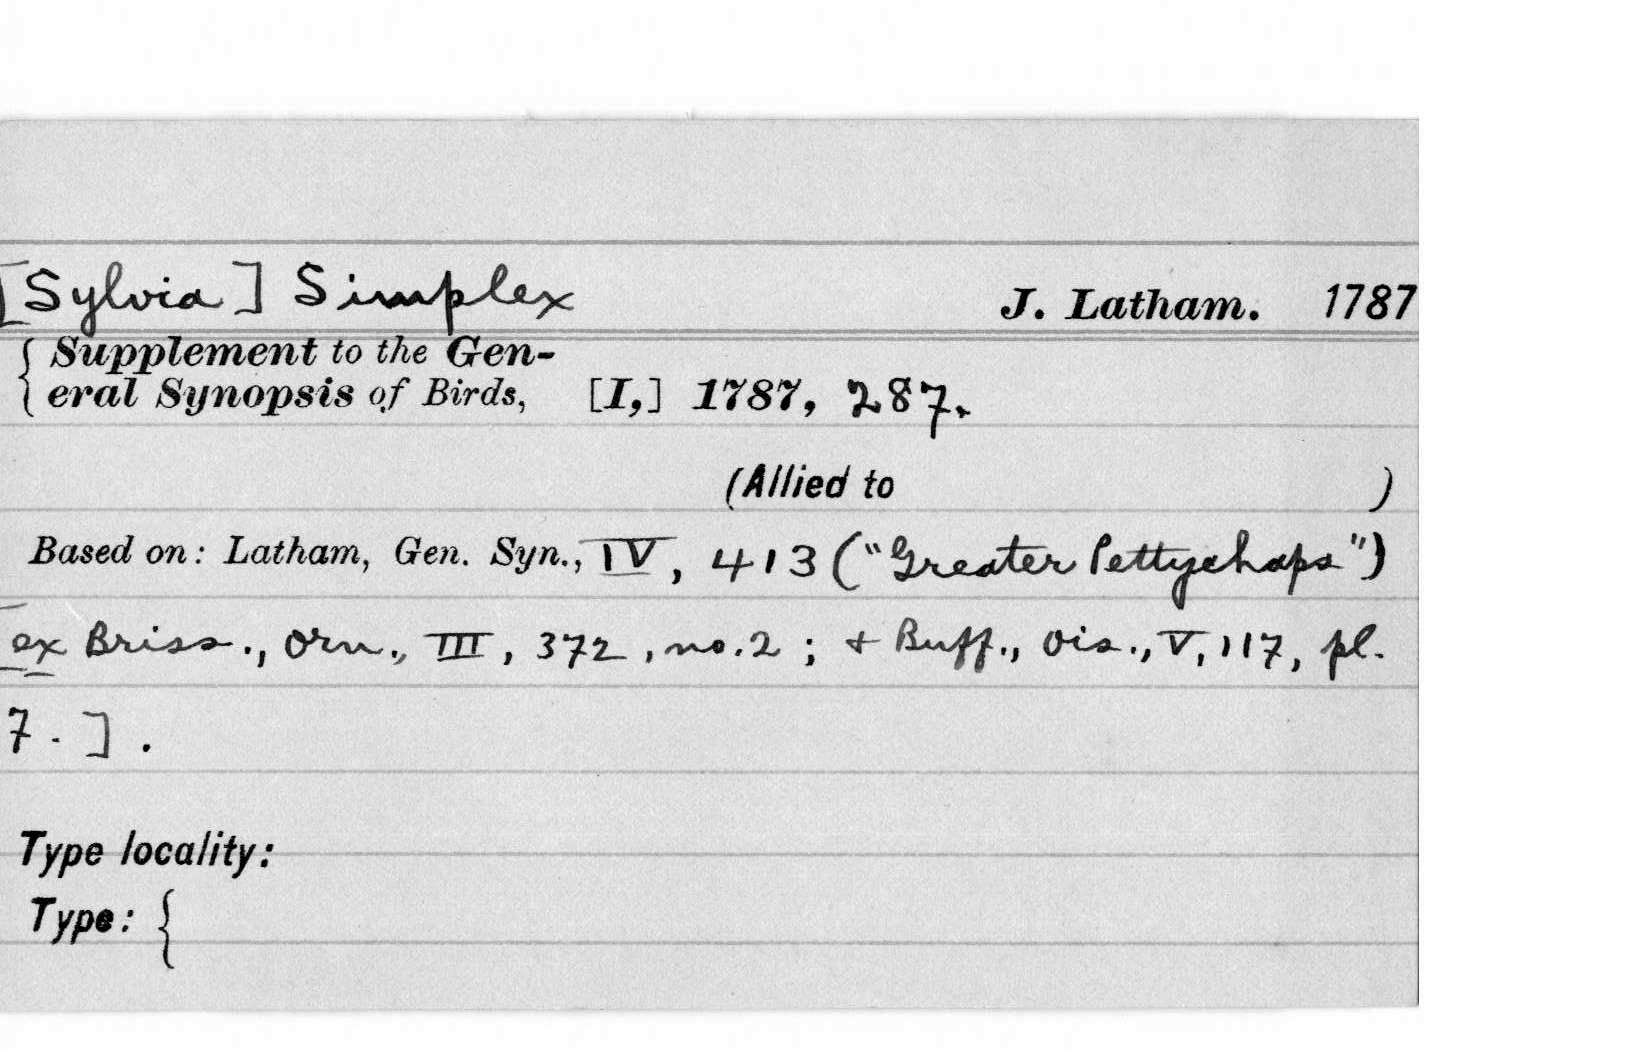 [Sylvia] Simplex J. Latham. 1787
Supplement to the Gen-
eral Synopsis of Birds, [I,] 1787, 287.
(Allied to )
Based on: Latham, Gen. Syn., IV, 413 ("Greater Pettychaps")
[ex Briss., Orn., III, 372, no. 2; + Buff., Ois., V, 117, pl.
7.].
Type locality:
Type: {